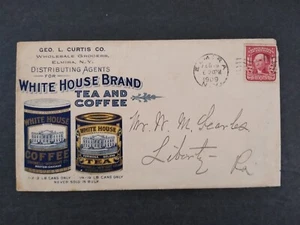 GEO. L. CURTIS CO.
WHOLESALE GROCERS,
ELMIRA, N.Y.
DISTRIBUTING AGENTS
FOR
WHITE HOUSE BRAND
TEA AND
COFFEE
WHITE HOUSE
COFFEE
WHITE HOUSE
TEA
LB CANS ONLY
LB CANS ONLY
NEVER SOLD IN BULK
ELMIRA
1909
N.Y.
Mr. W. M. Searles
Liberty
Pa